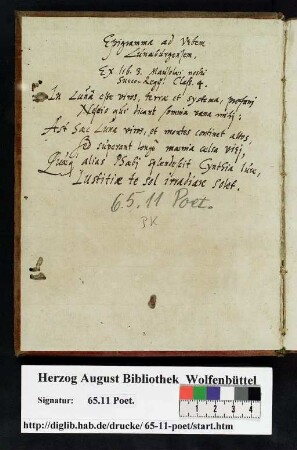 Epigramma ad Urbem
Lunaburgensem,
Ex lib. 3.
Class. 4.
In Luna esse viros, terrae et systema, profani
qui dicant somnia vana mihi;
Ast haec Luna viros, et montes continet altos,
superant longe moenia celsa viri,
alias Cynthia luce,
Iustitiae te sol irradiare solet.
65.11 Poet.
Herzog August Bibliothek Wolfenbüttel
Signatur: 65.11 Poet.
1 2 3 4
http://diglib.hab.de/drucke/65-11-poet/start.htm